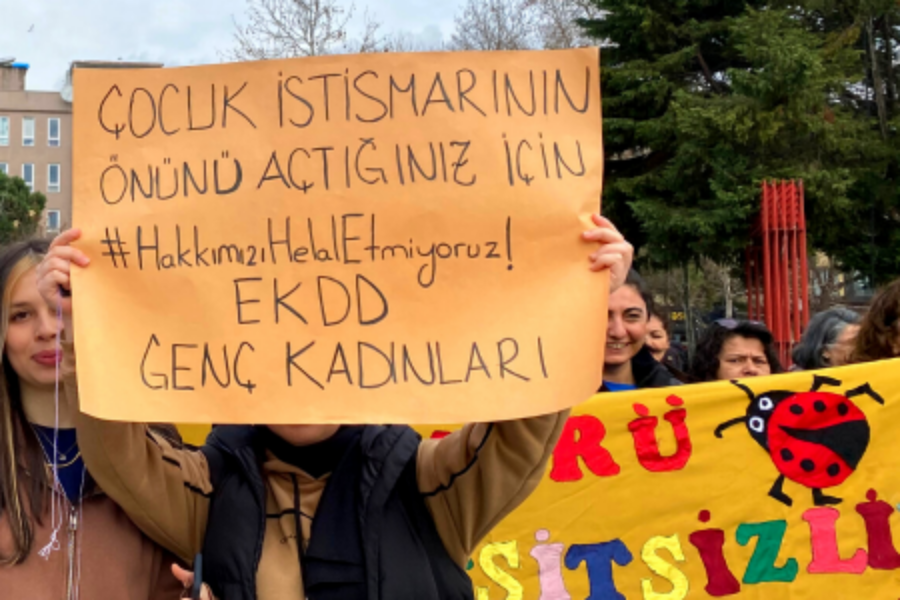 ÇOCUK İSTİSMARININ
ÖNÜNÜ AÇTIĞINIZ İÇİN
#HakkımızıHelalEtmiyoruz!
EKDD
GENÇ KADINLARI
RÜ
ŞİTSİZLİ